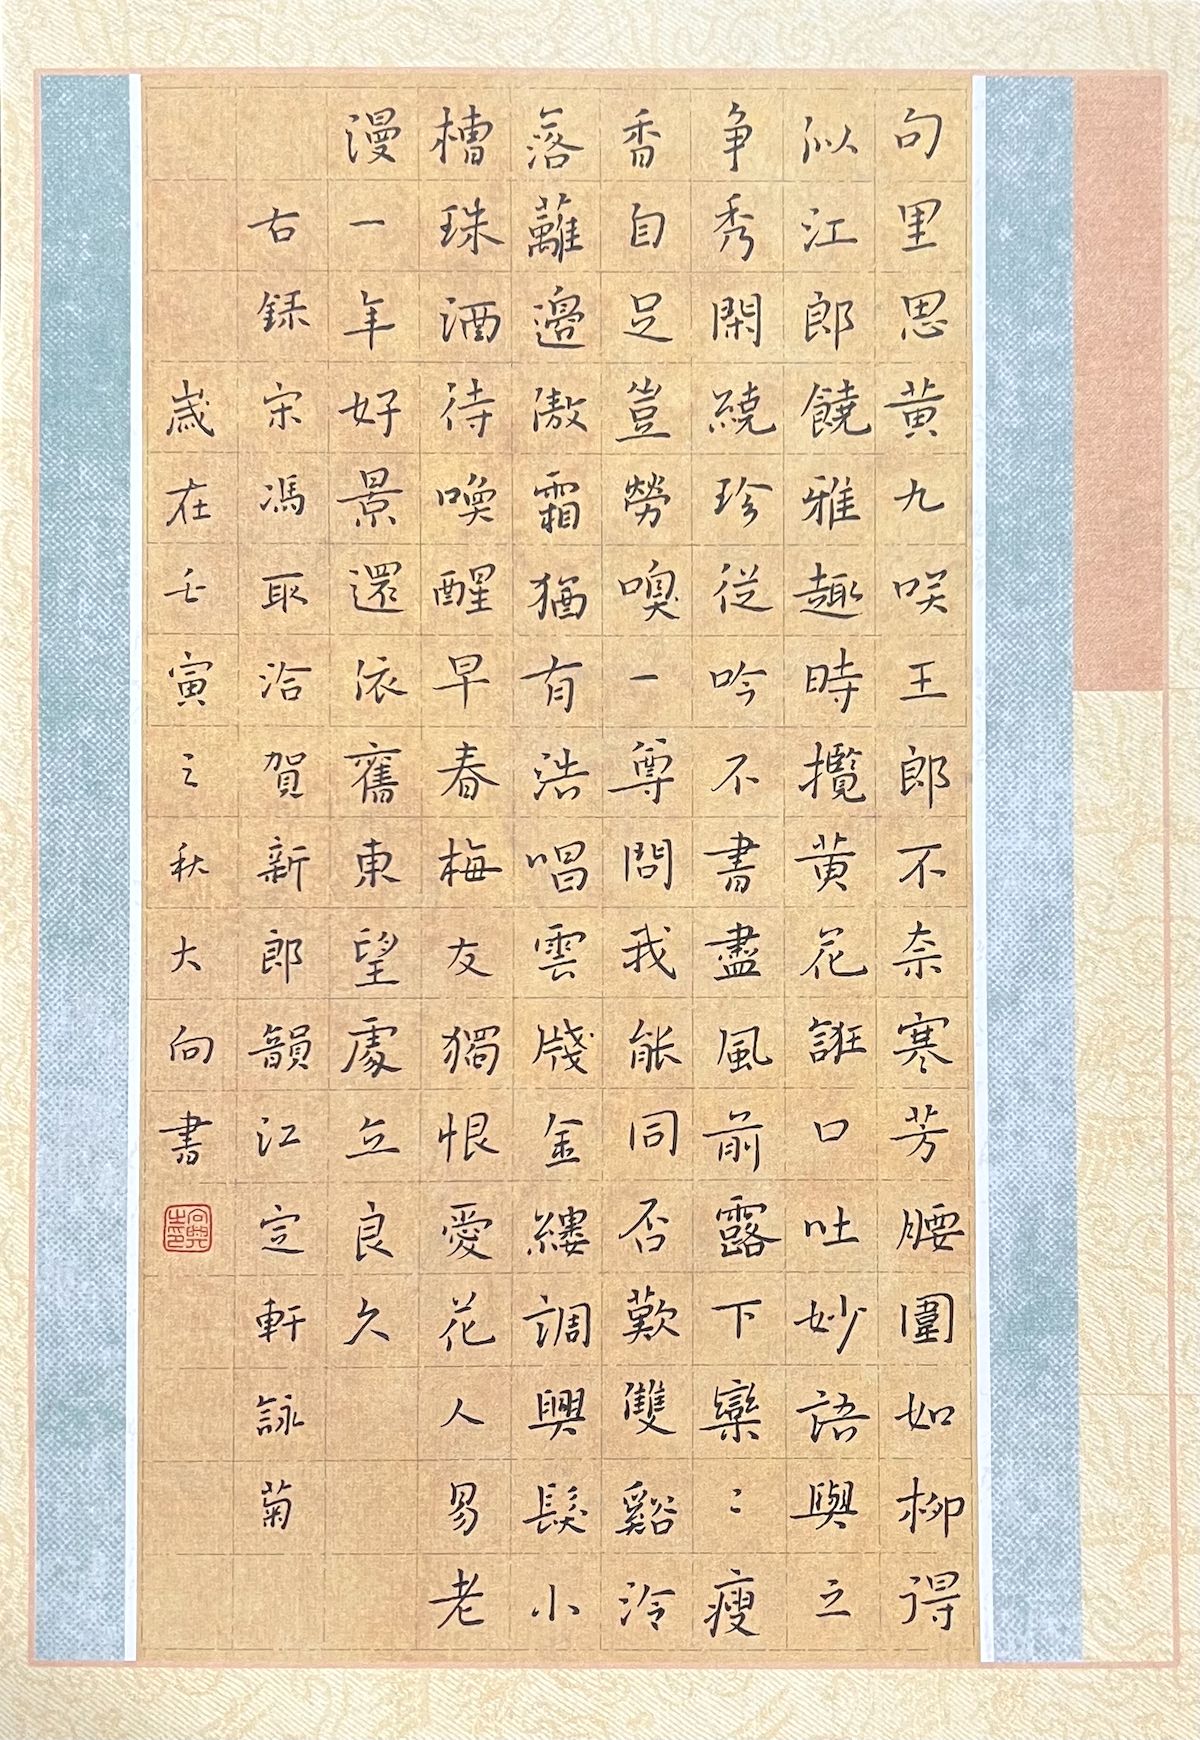 句里思黄九咲王郎不奈寒芳腰圍如柳得
似江郎饒雅趣時攬黄花誑口吐妙語與之
争秀閑繞珍從吟不書盡風前露下欒〻瘦
香自足豈勞嗅一尊問我能同否歎雙谿泠
落蘺邉傲霜猶有浩唱雲牋金縷調興髮小
槽珠酒待喚醒早春梅友獨恨愛花人易老
漫一年好景還依舊東望處立良久
右録宋馮取洽賀新郎韻江定軒詠菊
歲在壬寅之秋大向書